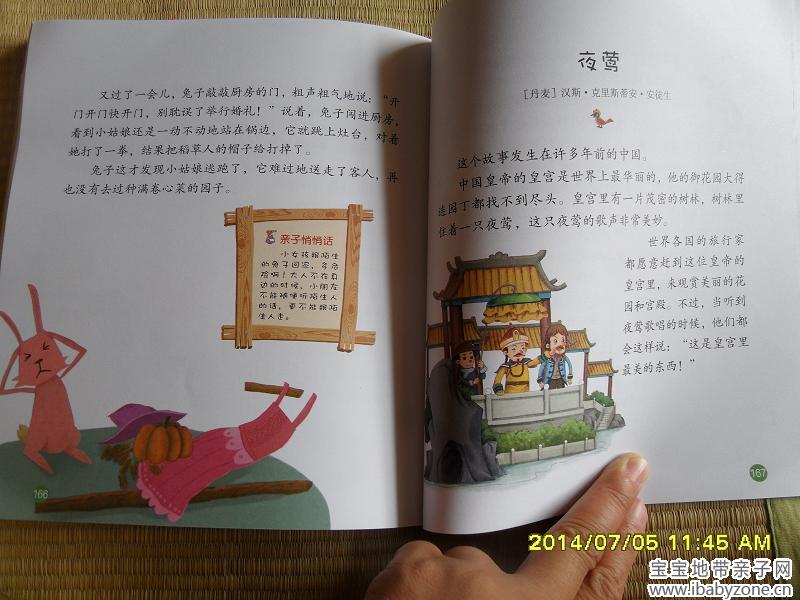 又过了一会儿，兔子敲敲厨房的门，粗声粗气地说：“开
门开门快开门，别耽误了举行婚礼！”说着，兔子闯进厨房，
看到小姑娘还是一动不动地站在锅边，它就跳上灶台，对着
她打了一拳，结果把稻草人的帽子给打掉了。
兔子这才发现小姑娘逃跑了，它难过地送走了客人，再
也没有去过种满卷心菜的园子。
亲子悄悄话
小女孩跟陌生
的兔子回家，多危
险啊！大人不在身
边的时候，小朋友
不能随便听陌生人
的话，更不能跟陌
生人走。
166
夜莺
［丹麦］汉斯·克里斯蒂安·安徒生
这个故事发生在许多年前的中国。
中国皇帝的皇宫是世界上最华丽的，他的御花园大得
连园丁都找不到尽头。皇宫里有一片茂密的树林，树林里
住着一只夜莺，这只夜莺的歌声非常美妙。
世界各国的旅行家
都愿意赶到这位皇帝的
皇宫里，来观赏美丽的花
园和宫殿。不过，当听到
夜莺歌唱的时候，他们都
会这样说：“这是皇宫里
最美的东西！”
167
2014/07/05 11:45 AM
宝宝地带亲子网
www.ibabyzone.cn